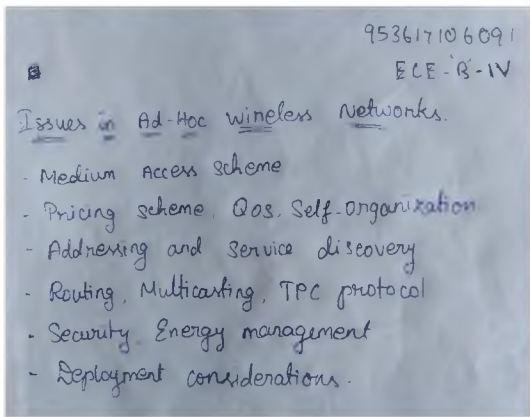 953617106091
ECE-B-IV
Issues in Ad-Hoc wireless Networks.
- Medium Access scheme
- Pricing scheme, QOS, Self-organization
- Addressing and Service discovery
- Routing, Multicasting, TPC protocol
- Security, Energy management
- Deployment considerations.